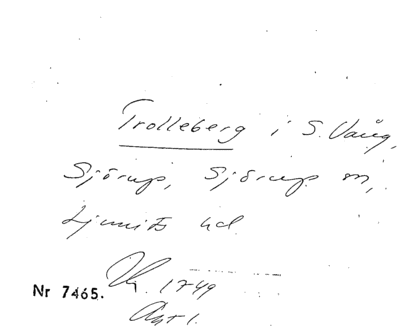 Trolleberg i S. Vång,
Sjörup, Sjörup sn,
Ljunits hd.
1749
Akt 1.
Nr 7465.